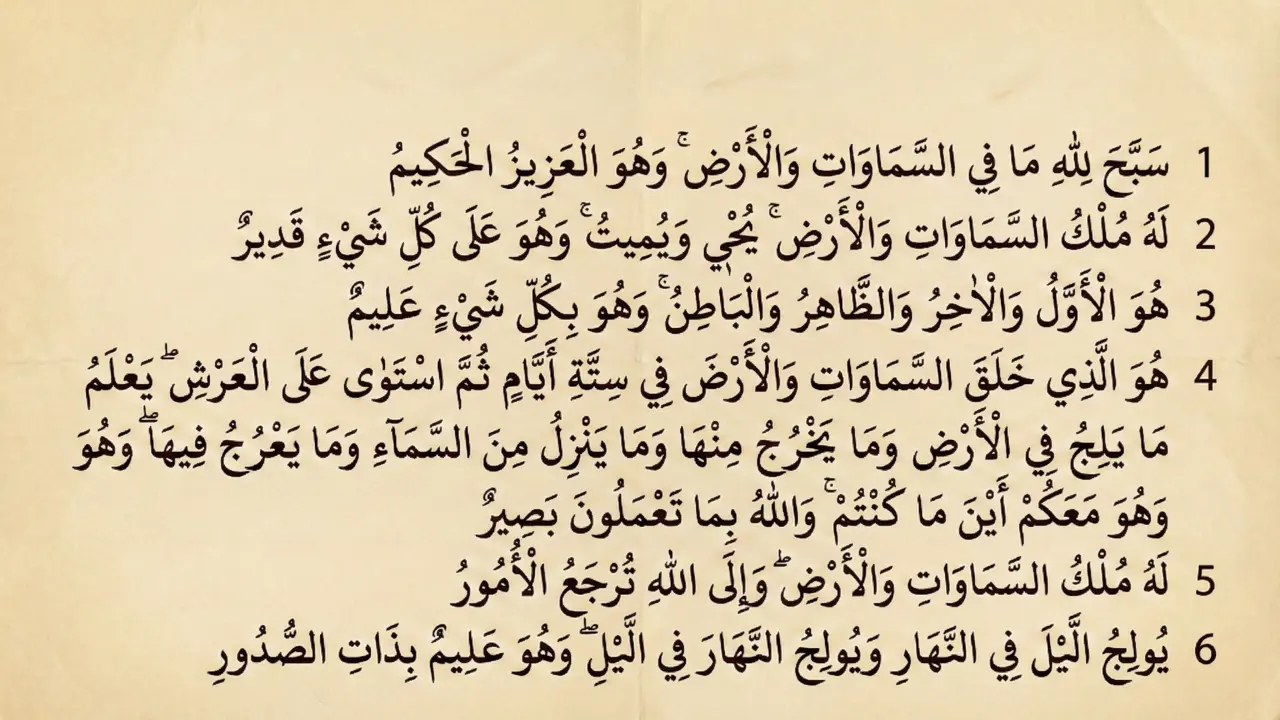 1 سَبَّحَ لِلّٰهِ مَا فِي السَّمَاوَاتِ وَالْأَرْضِ ۚ وَهُوَ الْعَزِيزُ الْحَكِيمُ
2 لَهُ مُلْكُ السَّمَاوَاتِ وَالْأَرْضِ ۚ يُحْيِ وَيُمِيتُ ۚ وَهُوَ عَلَى كُلِّ شَيْءٍ قَدِيرٌ
3 هُوَ الْأَوَّلُ وَالْاٰخِرُ وَالظَّاهِرُ وَالْبَاطِنُ ۚ وَهُوَ بِكُلِّ شَيْءٍ عَلِيمٌ
4 هُوَ الَّذِي خَلَقَ السَّمَاوَاتِ وَالْأَرْضَ فِي سِتَّةِ أَيَّامٍ ثُمَّ اسْتَوٰى عَلَى الْعَرْشِ ۖ يَعْلَمُ
مَا يَلِجُ فِي الْأَرْضِ وَمَا يَخْرُجُ مِنْهَا وَمَا يَنْزِلُ مِنَ السَّمَآءِ وَمَا يَعْرُجُ فِيهَا ۖ وَهُوَ
وَهُوَ مَعَكُمْ أَيْنَ مَا كُنْتُمْ ۚ وَاللّٰهُ بِمَا تَعْمَلُونَ بَصِيرٌ
5 لَهُ مُلْكُ السَّمَاوَاتِ وَالْأَرْضِ ۖ وَإِلَى اللّٰهِ تُرْجَعُ الْأُمُورُ
6 يُولِجُ الَّيْلَ فِي النَّهَارِ وَيُولِجُ النَّهَارَ فِي الَّيْلِ ۖ وَهُوَ عَلِيمٌ بِذَاتِ الصُّدُورِ